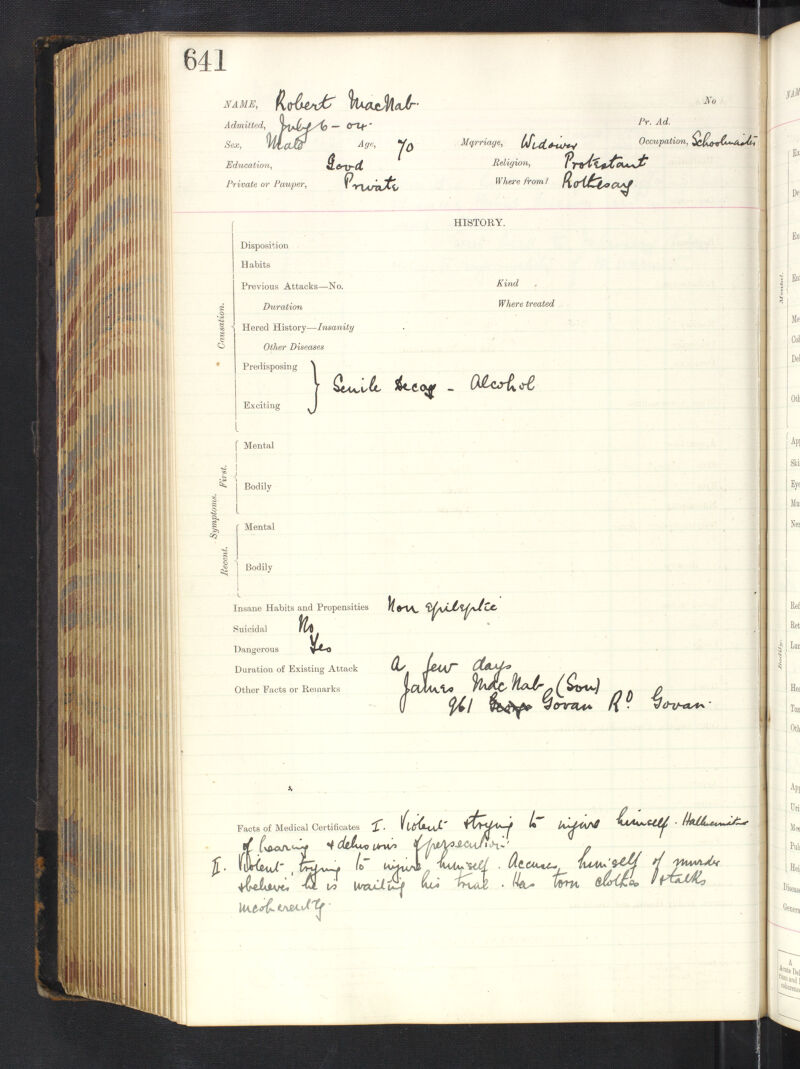 641
NAME, Robert MacNab. No
Admitted, July 6 - 04. Pr. Ad.
Sex, Male Age, 70 Marriage, Widower Occupation, Schoolmaster
Education, Good Religion, Protestant
Private or Pauper, Private Where from? Rothesay
HISTORY.
Causation.
Disposition
Habits
Previous Attacks—No. Kind
Duration Where treated
Hered History—Insanity
Other Diseases
Predisposing
Senile Decay - Alcohol
Exciting
Symptoms.
First.
Mental
Bodily
Recent.
Mental
Bodily
Insane Habits and Propensities Non epileptic
Suicidal No
Dangerous Yes
Duration of Existing Attack A few days
Other Facts or Remarks James MacNab (Son)
961 Govan Rd. Govan.
Facts of Medical Certificates I. Violent & trying to injure himself. Hallucinations
of hearing & delusions of persecution.
II. Violent, trying to injure himself. Accuses himself of murder
& believes he is waiting his trial. Has torn clothes & talks
incoherently.